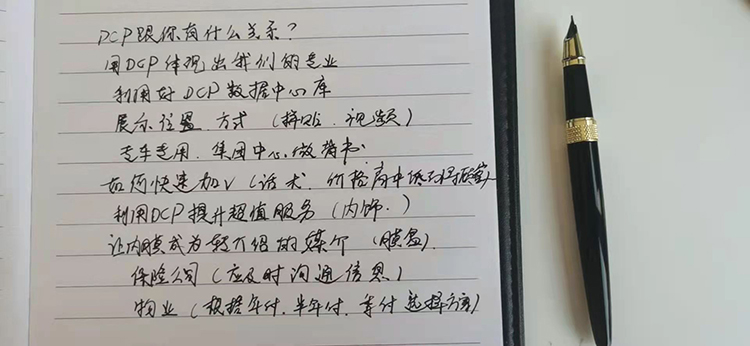 DCP跟你有什么关系?
用DCP体现出我们的专业
利用好DCP数据中心库
展示位置、方式(拼贴、视频)
专车专用、集团中心做背书
如何快速加V(话术、价格高中低
利用DCP提升超值服务(内饰、)
让内膜成为转介绍的媒介(膜盒)
保险公司(应及时沟通信息)
物业(根据年付、半年付、季付选择方案)